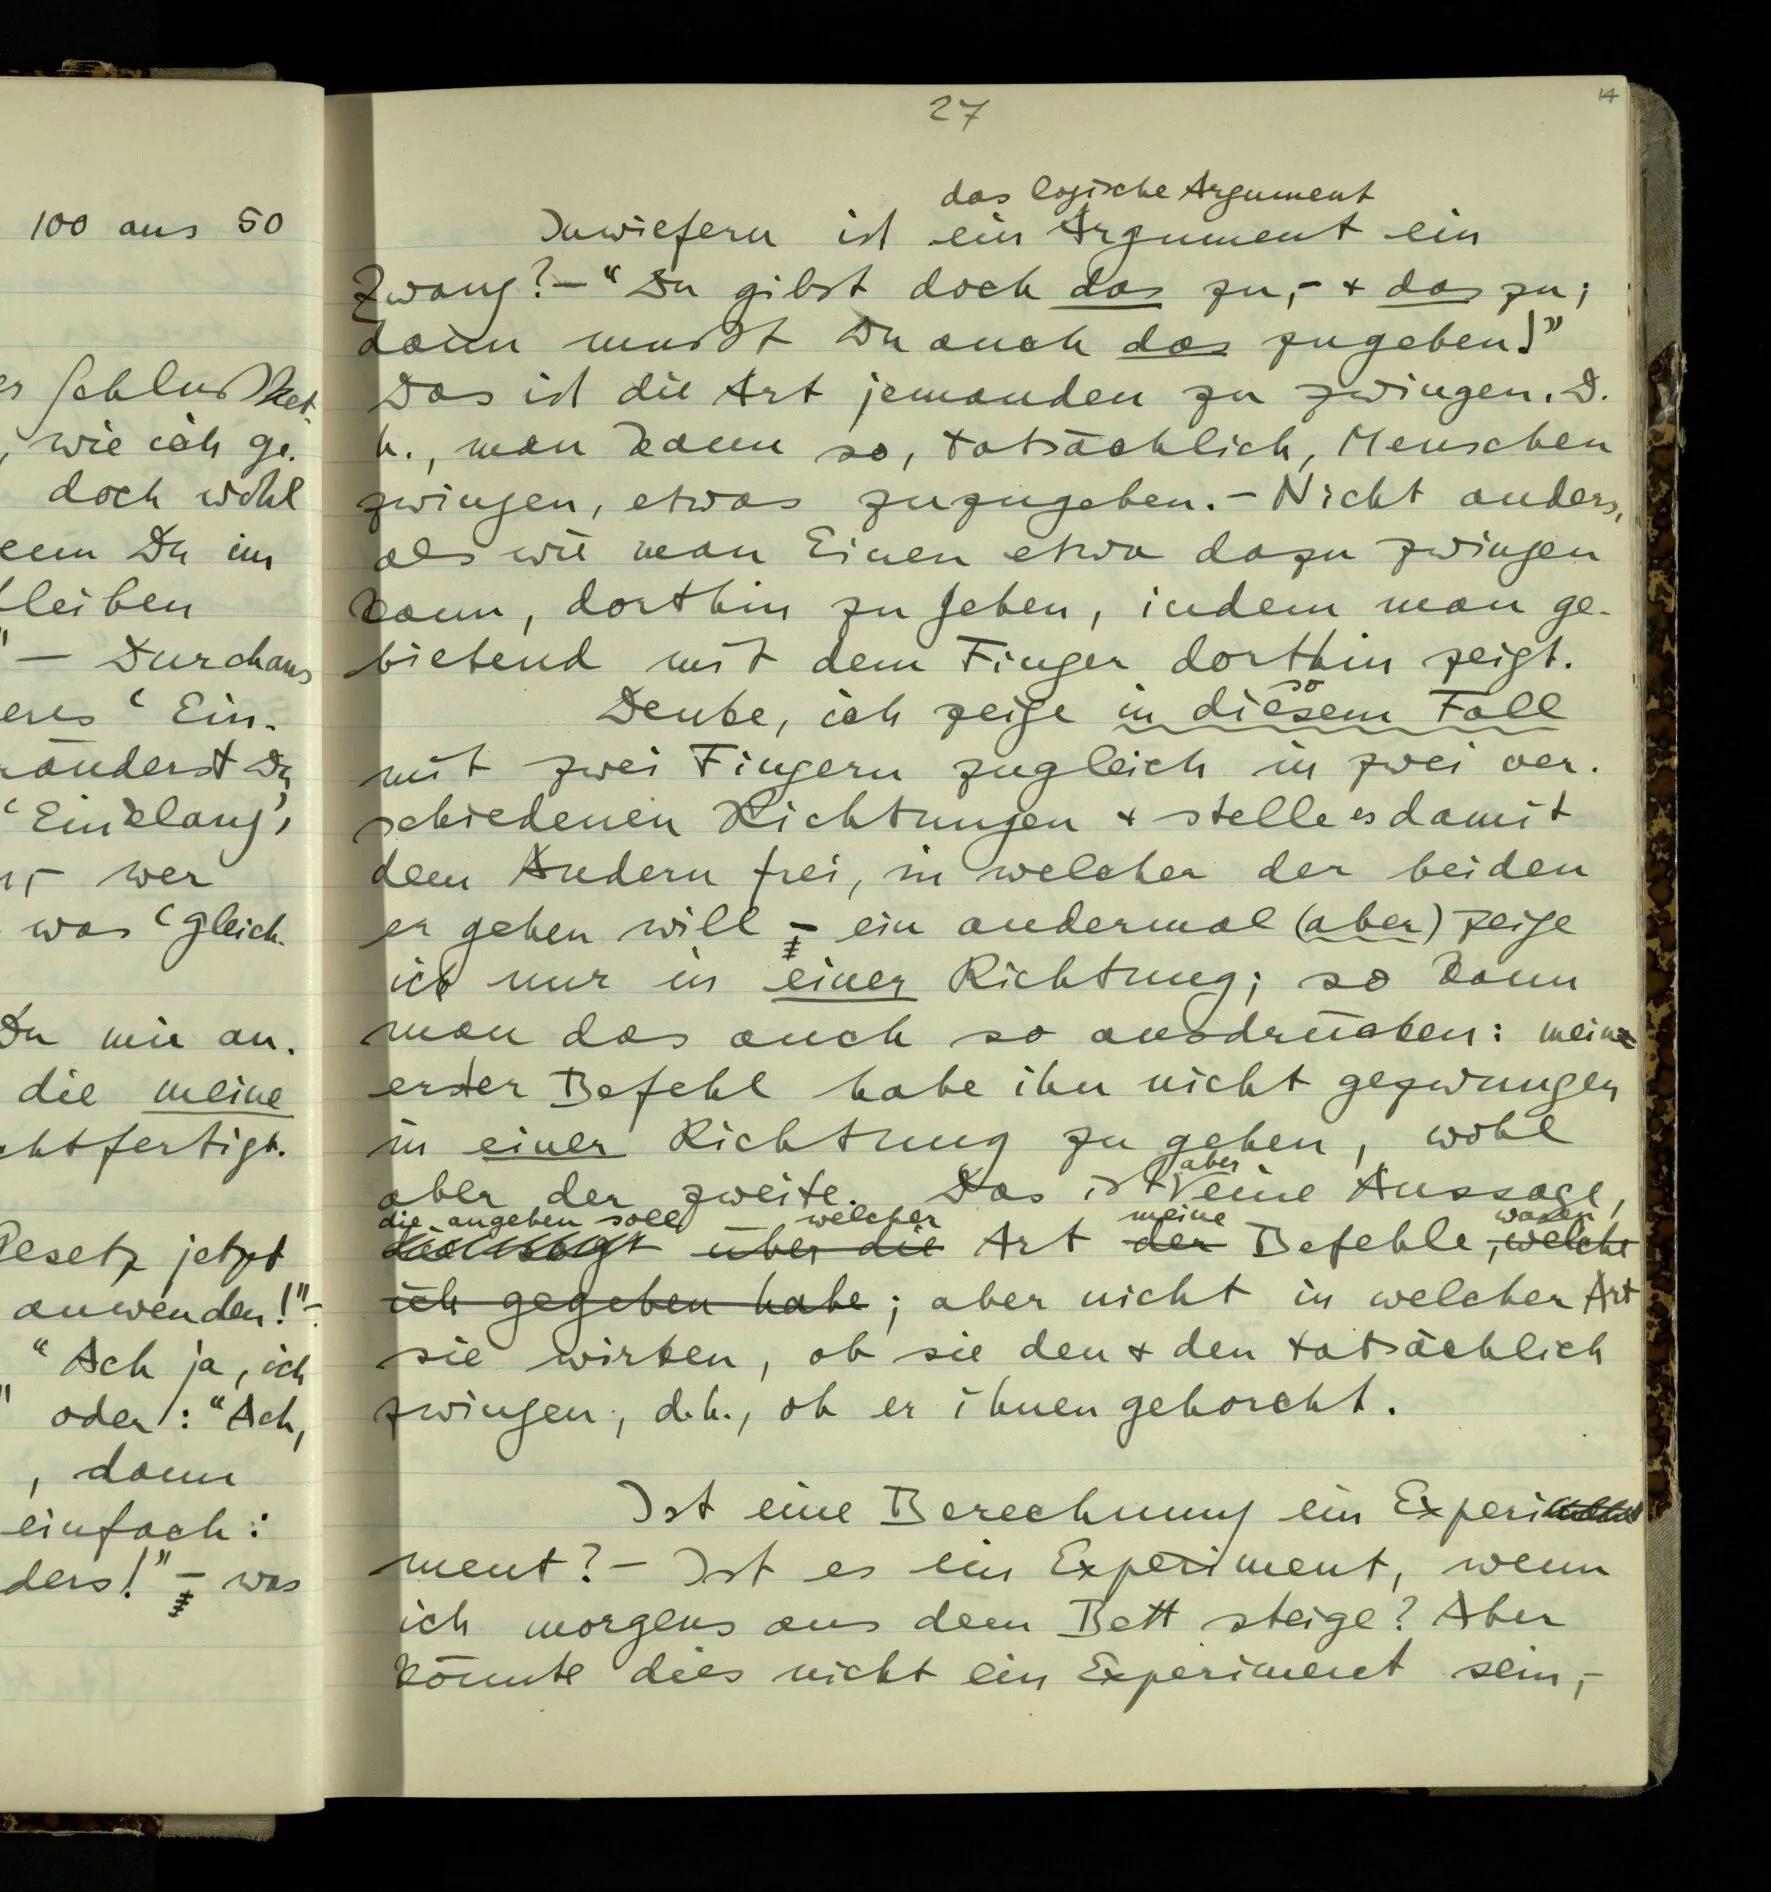 27
14
das logische Argument
Inwiefern ist ein Argument ein
Zwang? – “Du gibst doch das zu, – + das zu;
dann mußt Du auch das zugeben!”
Das ist die Art jemanden zu zwingen. D.
h., man kann so, tatsächlich, Menschen
zwingen, etwas zuzugeben. – Nicht anders,
als wie man Einen etwa dazu zwingen
kann, dorthin zu gehen, indem man ge-
bietend mit dem Finger dorthin zeigt.
so
Denke, ich zeige in diesem Fall
mit zwei Fingern zugleich in zwei ver-
schiedenen Richtungen + stelle es damit
dem Andern frei, in welcher der beiden
er gehen will – ein andermal (aber) zeige
ich nur in einer Richtung; so kann
man das auch so ausdrücken: mein
erster Befehl habe ihn nicht gezwungen
in einer Richtung zu gehen, wohl
aber
aber der zweite. Das ist eine Aussage,
die angeben soll welcher meine waren
über die Art der Befehle, welche
ich gegeben habe; aber nicht in welcher Art
sie wirken, ob sie den + den tatsächlich
zwingen, d.h., ob er ihnen gehorcht.
Ist eine Berechnung ein Experi
ment? – Ist es ein Experiment, wenn
ich morgens aus dem Bett steige? Aber
könnte dies nicht ein Experiment sein, –
100 aus 50
wie ich ge-
doch wohl
Du im
bleiben
” – Durchaus
‘Ein-
Du
‘Einklang’,
, – wer
was ‘gleich-
Du mir an.
die meine
Gesetz jetzt
anwenden!” –
“Ach ja, ich
” oder: “Ach,
, dann
einfach:
ders!” – was